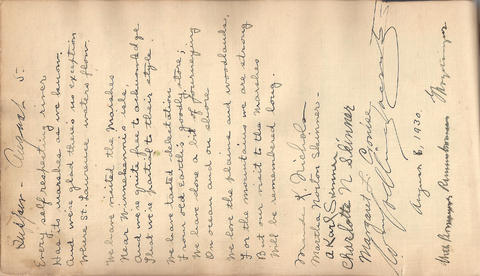 August 5.
Every self respecting river
Has its marshes as we know.
And we're glad there's no exception
Where St. Lawrence waters flow.
We have visited the Marshes
Near Winnebennis isle,
And we're quite free to acknowledge
That we're partial to their style.
We have tasted salutation
From old earth's goodly store;
We have done a bit of journeying
On ocean and on shore
We love the plains and woodlands,
For the mountains we are strong
But our visit to the Marshes
Will be remembered long.
K. Nichols
Martha Norton Skinner -
Karl Skinner
Charlotte N Skinner
Margaret L.
August 6, 1930